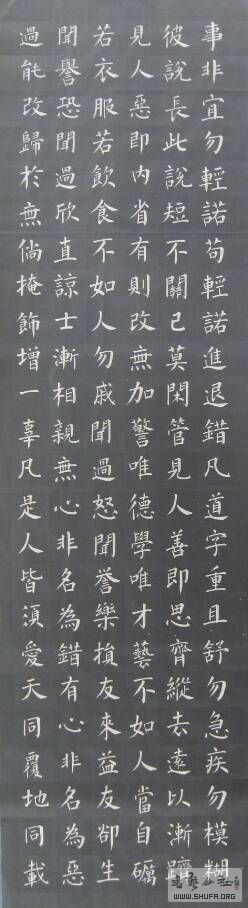 事非宜勿輕諾苟輕諾進退錯凡道字重且舒勿急疾勿模糊
彼說長此說短不關己莫閑管見人善即思齊縱去遠以漸躋
見人惡即內省有則改無加警唯德學唯才藝不如人當自礪
若衣服若飲食不如人勿戚聞過怒聞譽樂損友來益友卻生
聞譽恐聞過欣直諒士漸相親無心非名為錯有心非名為惡
過能改歸於無倘掩飾增一辜凡是人皆須愛天同覆地同載
WWW.SHUFA.ORG